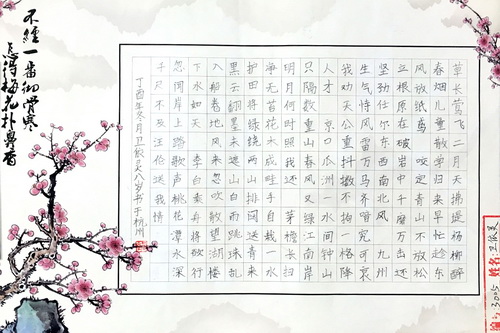 草长莺飞二月天 拂堤杨柳醉
春烟儿童散学归来早忙趁东
风放纸鸢 咬定青山不放松
立根原在破岩中千磨万击还
坚劲任尔东西南北风 九州
生气恃风雷万马齐喑究可哀
我劝天公重抖擞不拘一格降
人才 京口瓜洲一水间钟山
只隔数重山春风又绿江南岸
明月何时照我还 茅檐长扫
净无苔花木成畦手自栽一水
护田将绿绕两山排闼送青来
黑云翻墨未遮山白雨跳珠乱
入船卷地风来忽吹散望湖楼
下水如天 李白乘舟将欲行
忽闻岸上踏歌声桃花潭水深
千尺不及汪伦送我情
丁酉年冬月卫八岁书于杭州
不經一番彻骨寒
怎得梅花扑鼻香
姓名